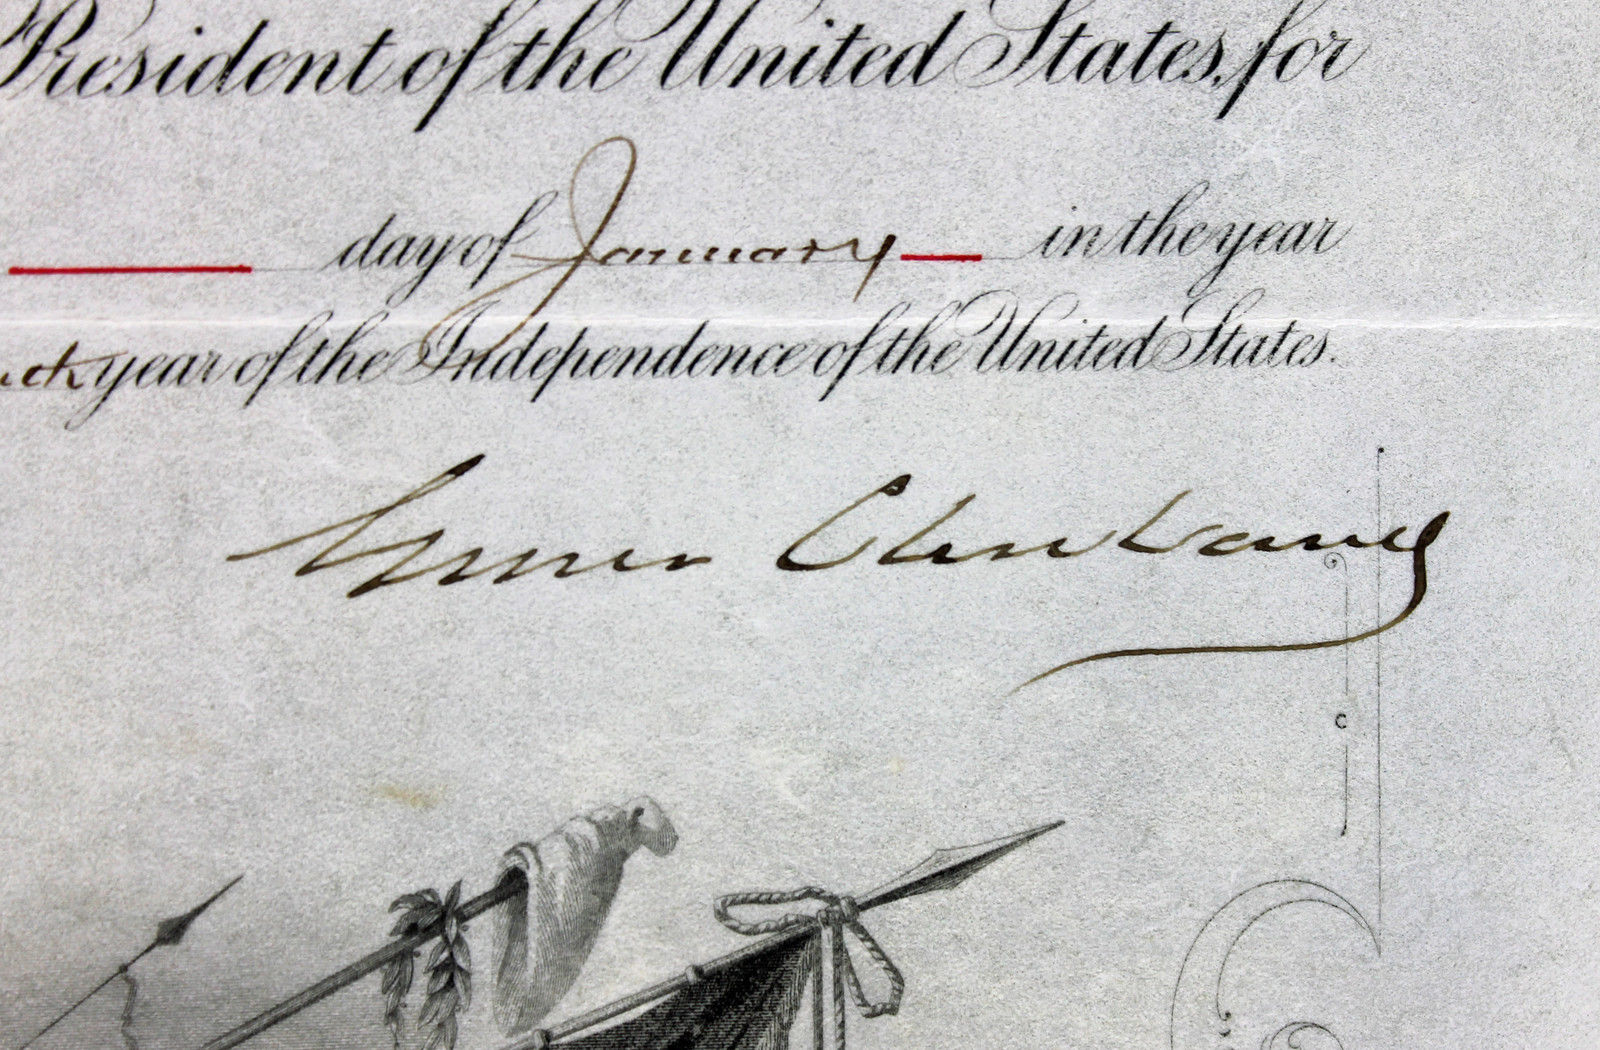 President of the United States, for
day of January in the year
year of the Independence of the United States.
Grover Cleveland